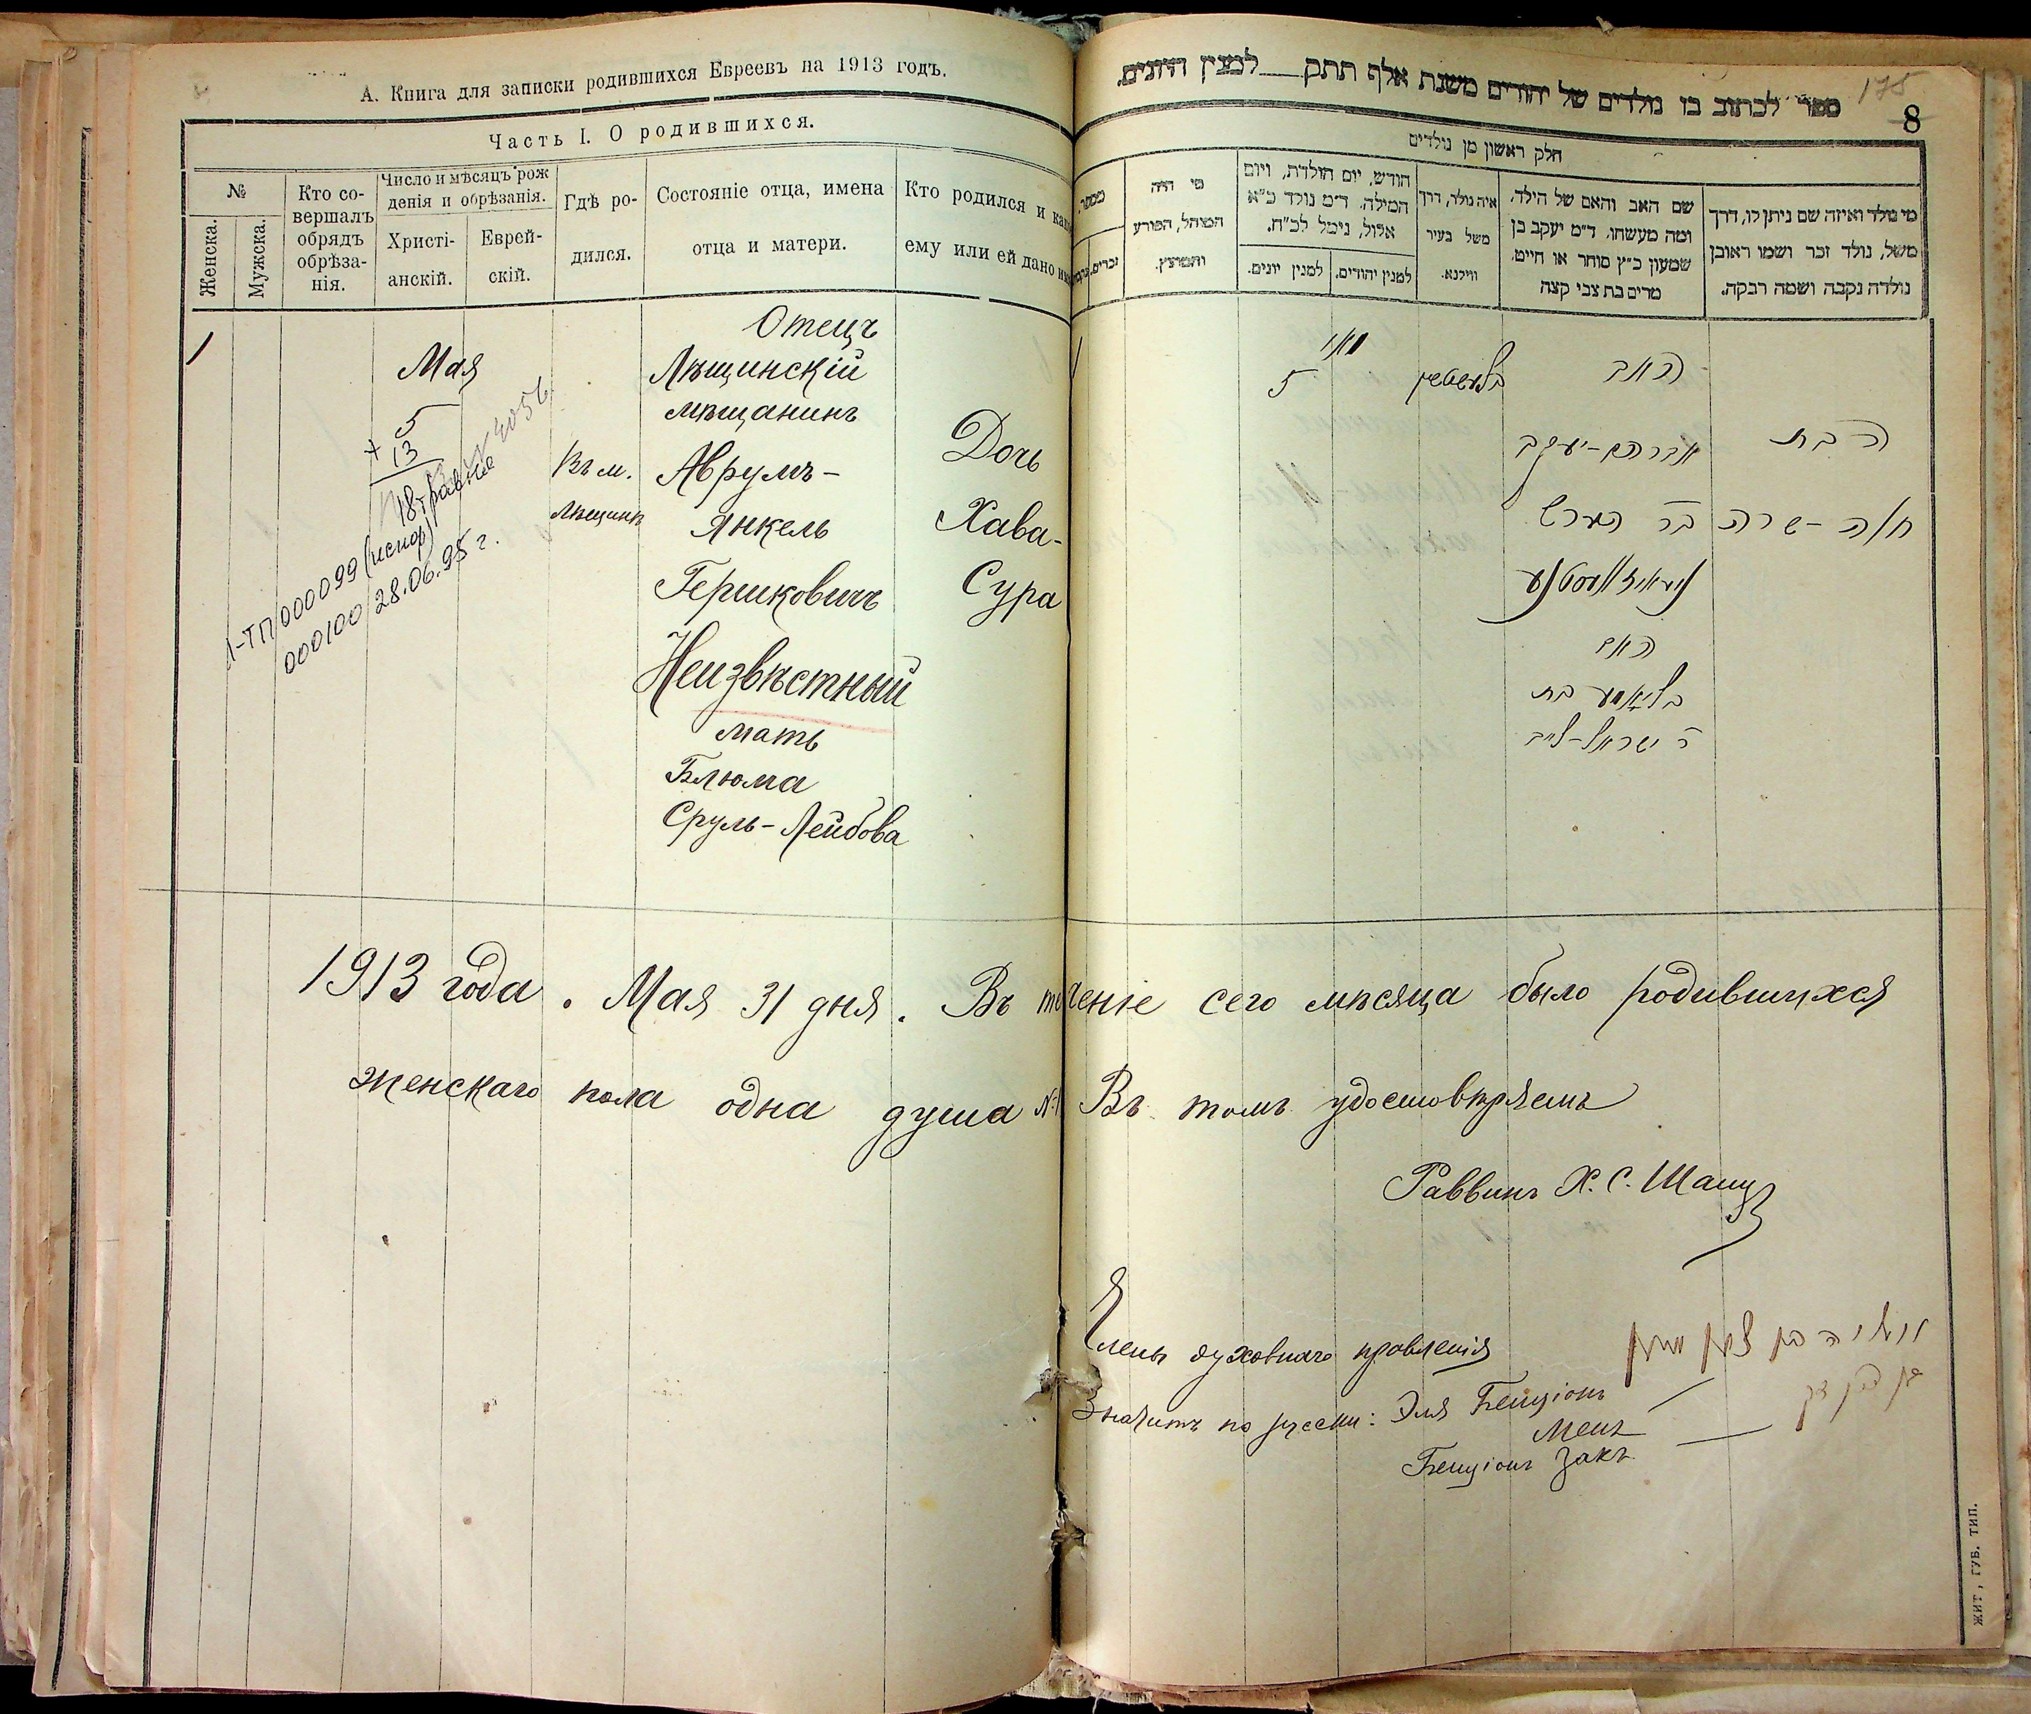 А. Книга для записки родившихся Евреевъ на 1913 годъ.
Часть I. О родившихся.
№
Женска.
Мужска.
Кто со-
вершалъ
обрядъ
обрѣза-
нія.
Число и мѣсяцъ рож
денія и обрѣзанія.
Христі-
анскій.
Еврей-
скій.
Гдѣ ро-
дился.
Состояніе отца, имена
отца и матери.
Кто родился и как
ему или ей дано им
1
Мая
5
+ 13
18
травня
1-ТП 000099 (испор)
000100 28.06.95 г.
Въ м.
Лѣщинѣ
Отецъ
Лѣщинскій
мѣщанинъ
Аврумъ-
Янкель
Гершковичъ
Неизвѣстный
мать
Блюма
Сруль-Лейбова
Дочь
Хава-
Сура
ספר לכתוב בו נולדים של יהודים משנת אלף תתק למנין היונים.
175
8
חלק ראשון מן נולדים
מי נולד ואיזה שם ניתן לו, דרך
משל, נולד זכר ושמו ראובן
נולדה נקבה ושמה רבקה.
שם האב והאם של הילד,
ומה מעשהו. ד״מ יעקב בן
שמעון כ״ץ סוחר או חיים,
מרים בת צבי קצה
איה נולד, דרך
משל בעיר
ווילנא.
חודש, יום הולדת, ויום
המילה. ד״מ נולד כ״א
אלול, נימל לכ״ח.
למנין יהודים.
למנין יונים.
מי היה
המוהל, הפורע
והמוצץ.
מספר
זכרים.
1
5
האב
הבת
אברהם-יעקב
חוה-שרה
בר הערש
האם
בליומע בת
ר ישראל-לייב
1913 года. Мая 31 дня. Въ теченіе сего мѣсяца было родившихся
женскаго пола одна душа №1 Въ томъ удостовѣряемъ
Раввинъ Х. С. Шацъ
Члены духовнаго правленія
Значитъ по русски: Эля Бенціонъ
Менъ
Бенціонъ Закъ
ЖИТ, ГУБ. ТИП.